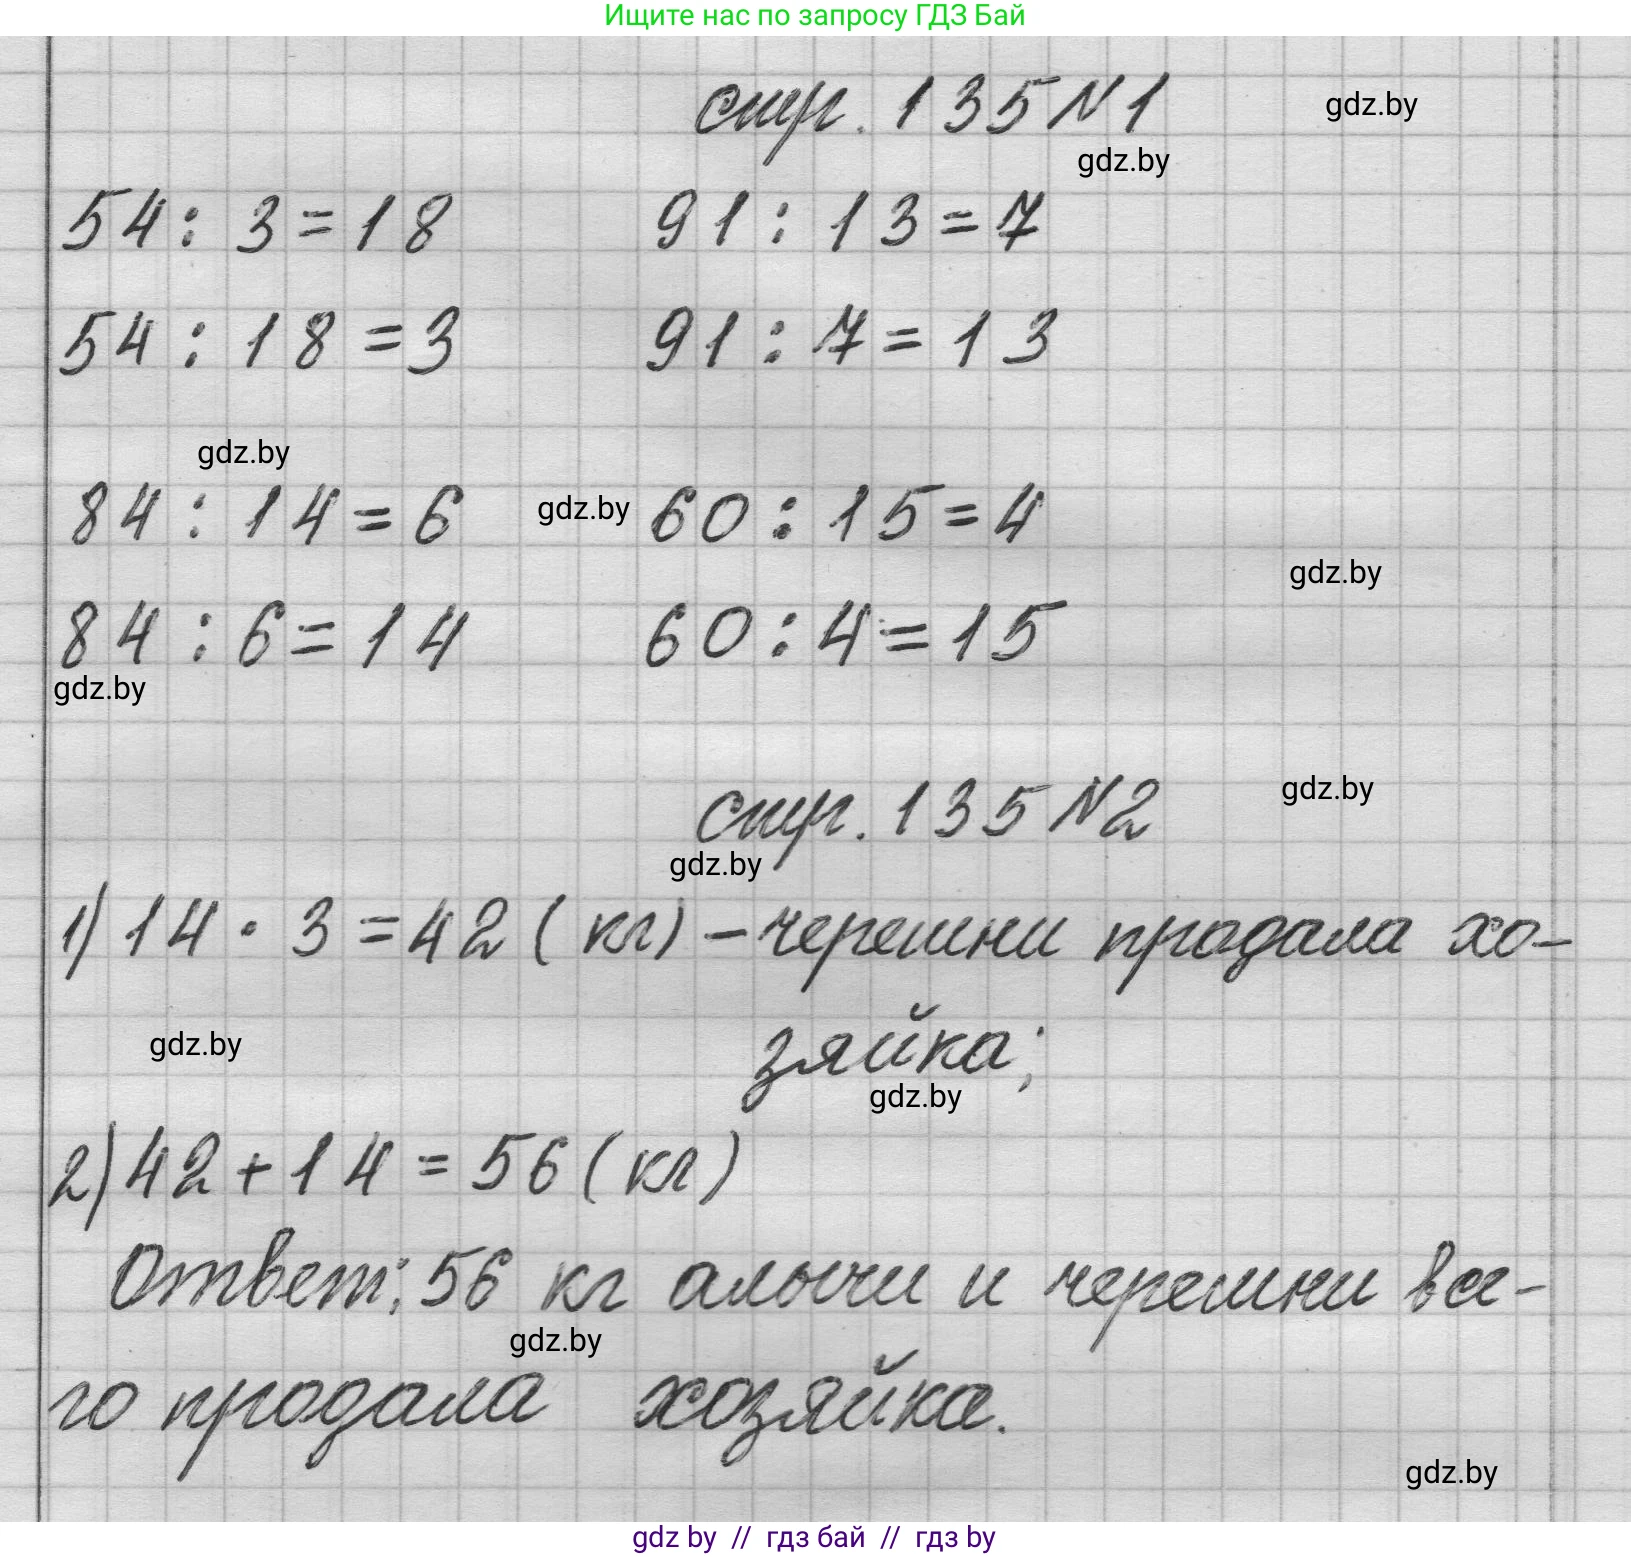 Ищите нас по запросу ГДЗ Бай
стр. 135 N 1
gdz.by
gdz.by
54 : 3 = 18 91 : 13 = 7
54 : 18 = 3 91 : 7 = 13
gdz.by
84 : 14 = 6 gdz.by 60 : 15 = 4
gdz.by
84 : 6 = 14 60 : 4 = 15
gdz.by
стр. 135 N 2
gdz.by
gdz.by
1) 14 · 3 = 42 ( кг) – черешни продала хо-
зяйка;
gdz.by
gdz.by
2) 42 + 14 = 56 ( кг )
Ответ: 56 кг алычи и черешни все-
gdz.by
го продала хозяйка.
gdz.by
gdz by // гдз бай // гдз by